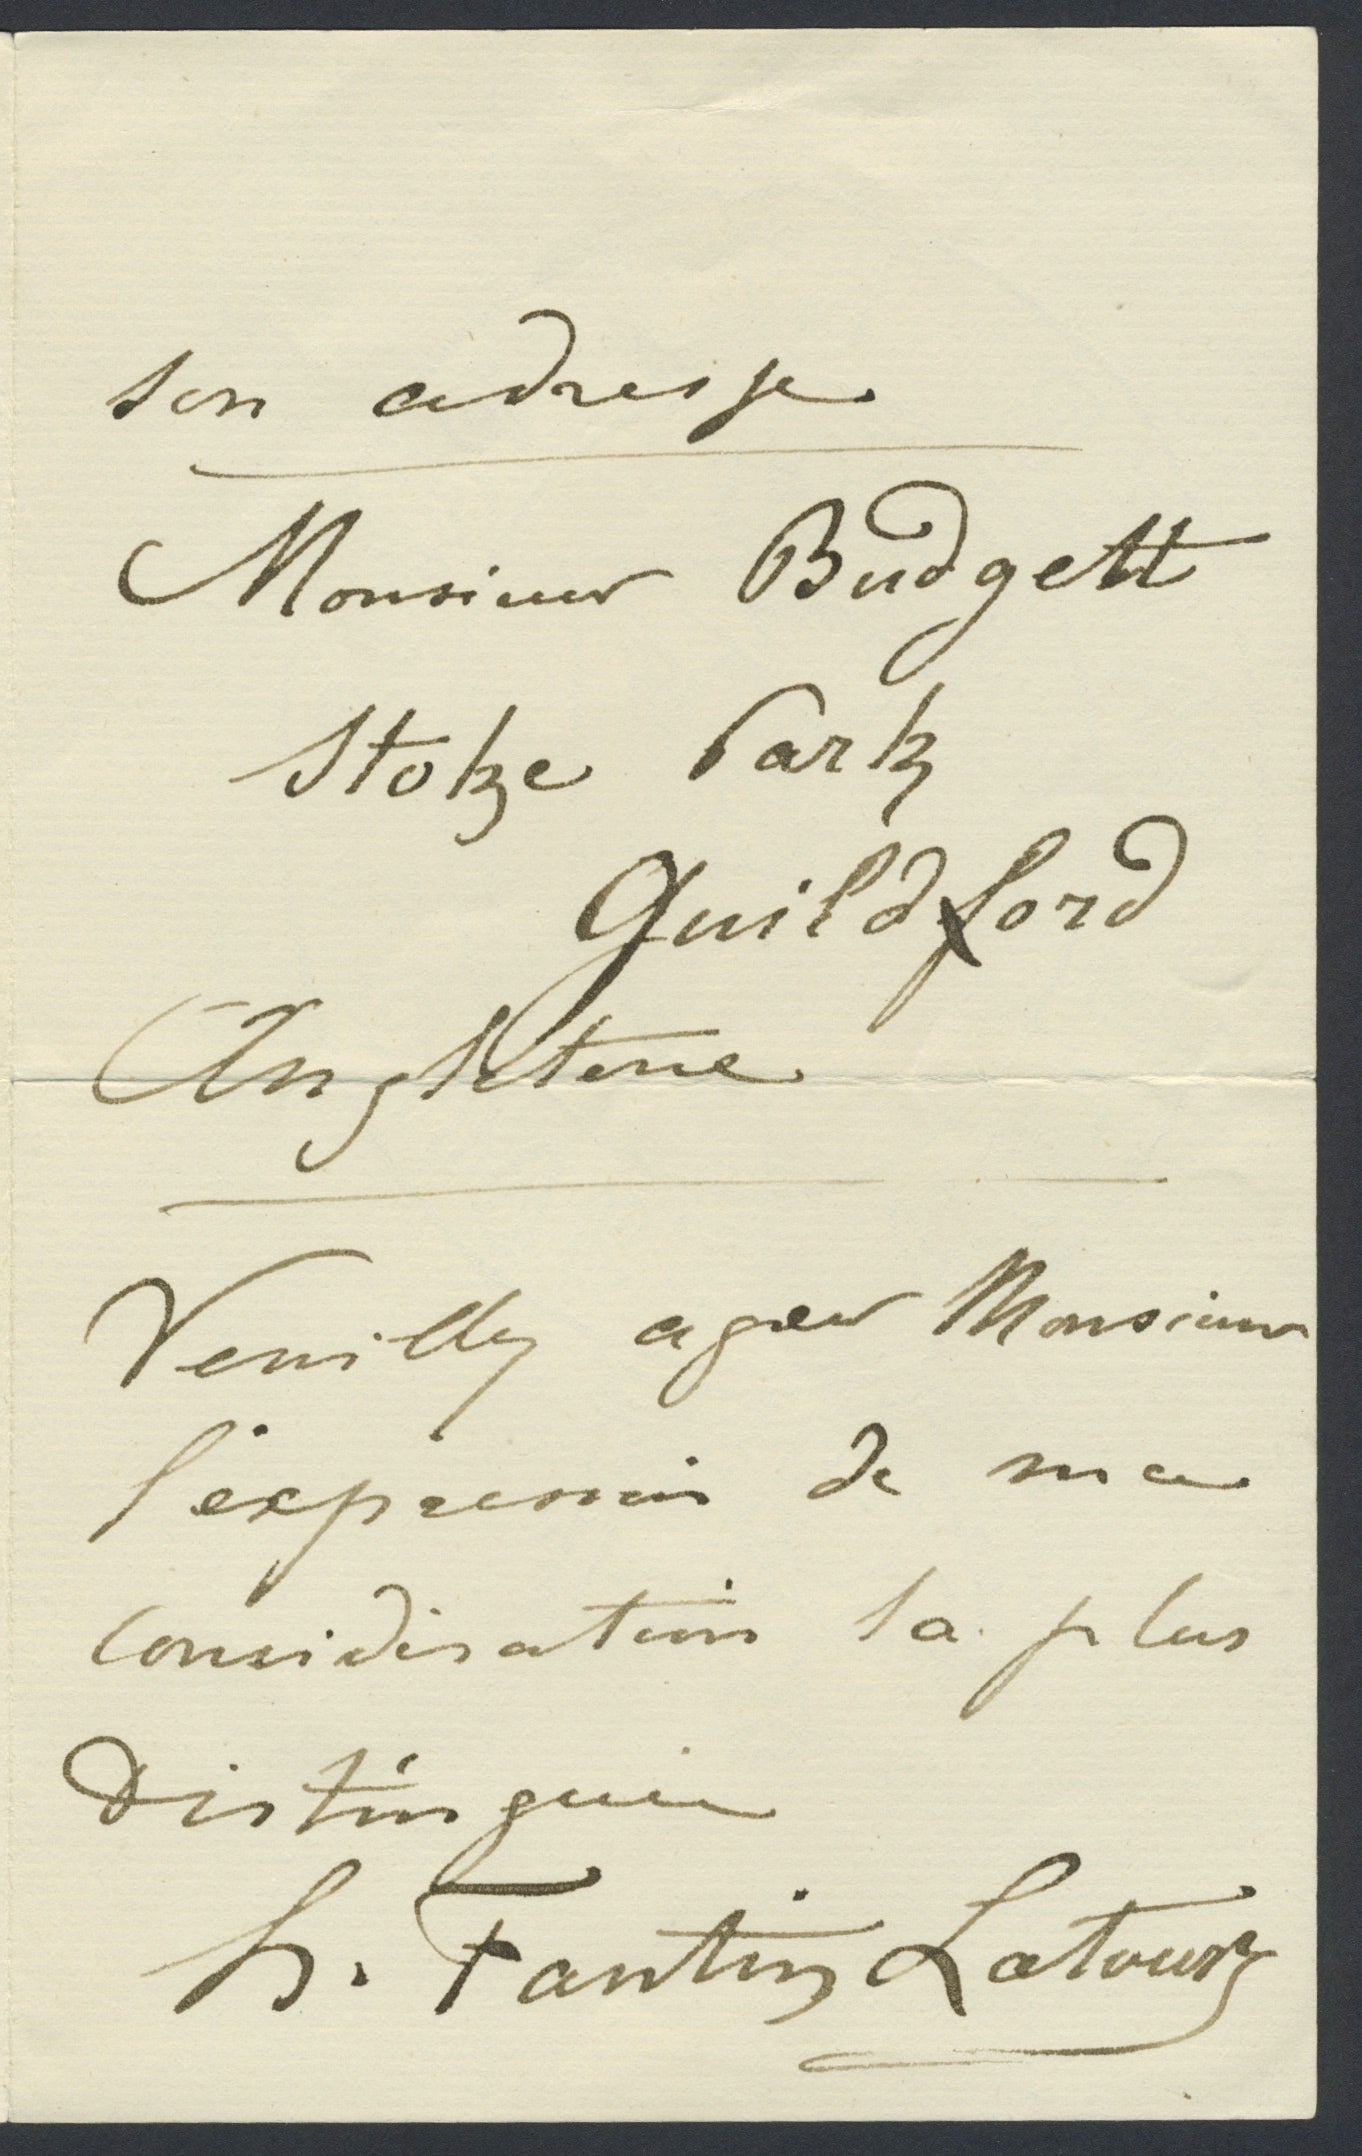 son adresse
Monsieur Budgett
Stoke Park
Guildford
Angleterre
Veuillez agréer Monsieur
l'expression de ma
considération la plus
distinguée
h. Fantin Latour